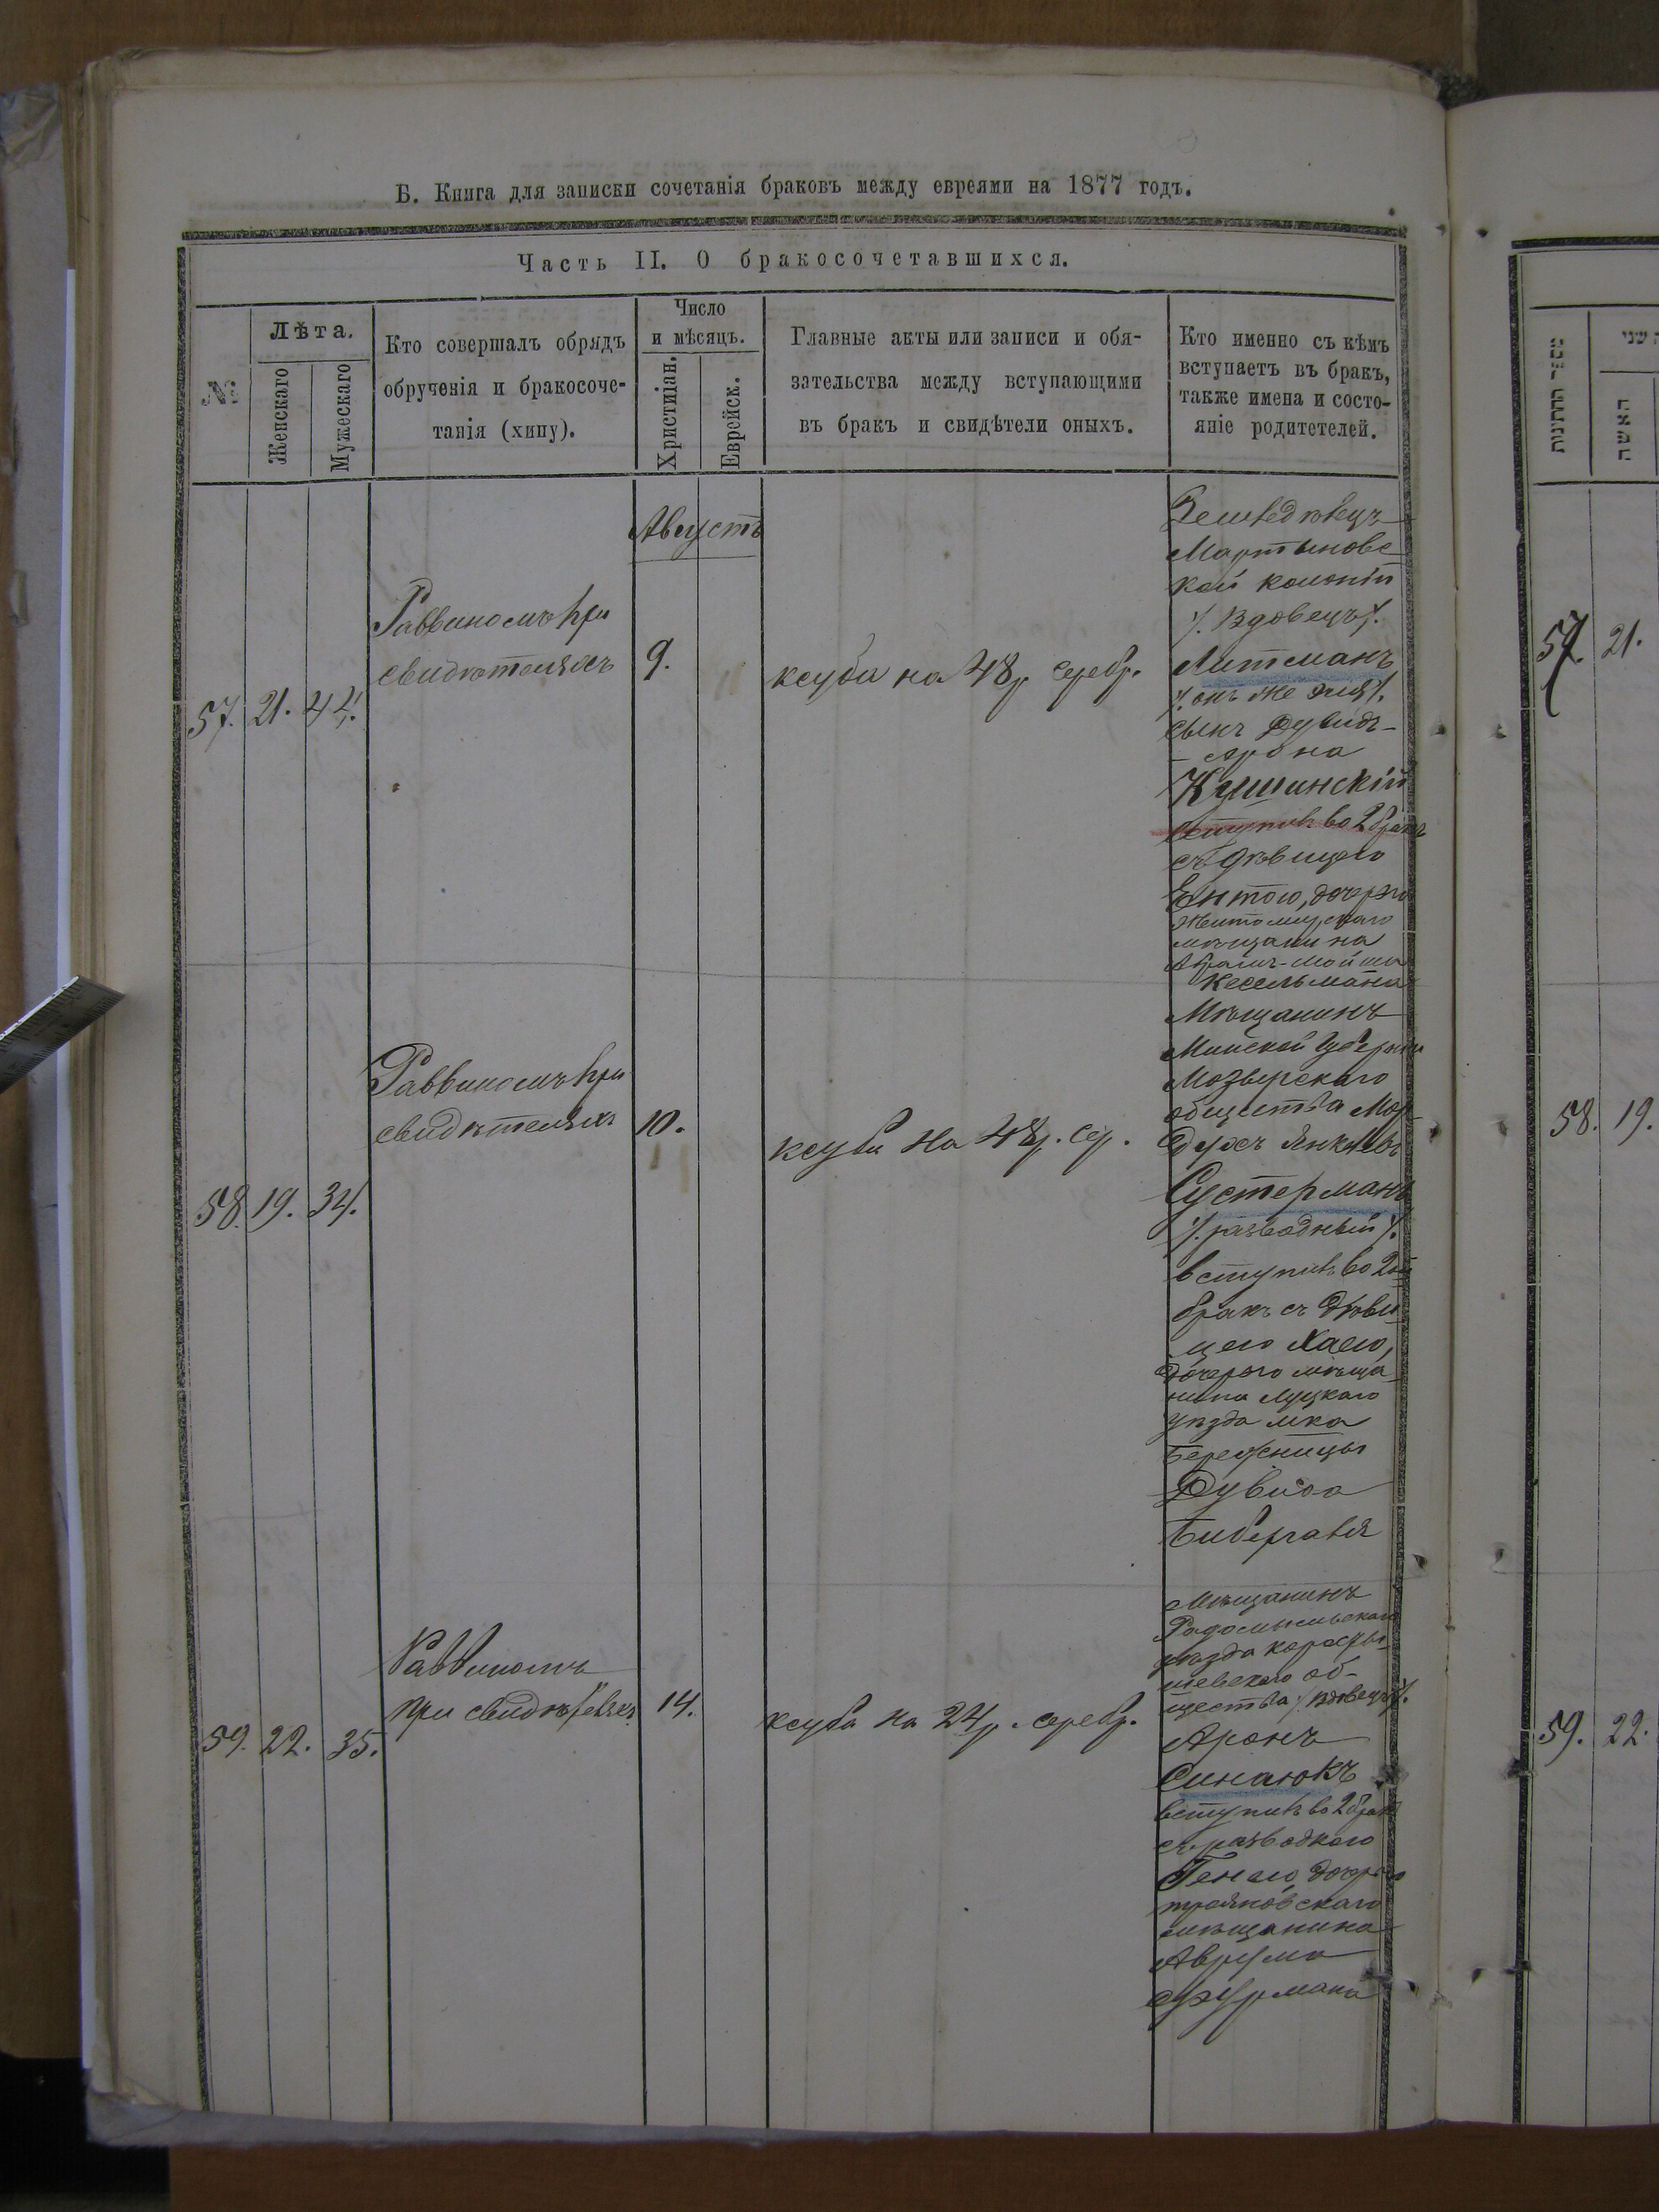 Б. Книга для записки сочетанія браковъ между евреями на 1877 годъ.
Часть II. О бракосочетавшихся.
№
Лѣта.
Женскаго
Мужескаго
Кто совершалъ обрядъ
обрученія и бракосоче-
танія (хипу).
Число
и мѣсяцъ.
Христіан.
Еврейск.
Главные акты или записи и обя-
зательства между вступающими
въ бракъ и свидѣтели оныхъ.
Кто именно съ кѣмъ
вступаетъ въ бракъ,
также имена и состо-
яніе родитетелей.
Августъ
57. 21. 44.
Раввиномъ при
свидѣтеляхъ
9.
ксуба на 48 р. серебр.
Мартыновс
кой колоніи
/. вдовецъ /.
Литманъ
сынъ Дувидъ-
Арона
Кушинскій
вступилъ во 2 бракъ
съ дѣвицею
Ентою, дочерью
Житомирскаго
мѣщанина
Абрамъ-Мойша
Кесельмана
58. 19. 34.
Раввиномъ при
свидѣтеляхъ
10.
ксуба на 48 р. сер.
Мѣщанинъ
Минской губерніи
Мозырскаго
общества Мор-
духъ Янкелевъ
Сустерманъ
/. разводный /.
вступилъ во 2ой
бракъ съ дѣви-
цею Хаею,
дочерью мѣща-
нина Луцкаго
уѣзда мка
Бережницы
Дувида
59. 22. 35.
Раввиномъ
при свидѣтеляхъ
14.
ксуба на 24 р. серебр.
Мѣщанинъ
Радомысльскаго
уѣзда Коросты-
шевскаго об-
щества /. вдовецъ /.
Аронъ
Синаюкъ
вступилъ во 2 бракъ
съ разводкою
Генею дочерью
трояновскаго
мѣщанина
Аврума
Фурмана
מספר החתונות
האשה
57. 21.
58. 19.
59. 22.